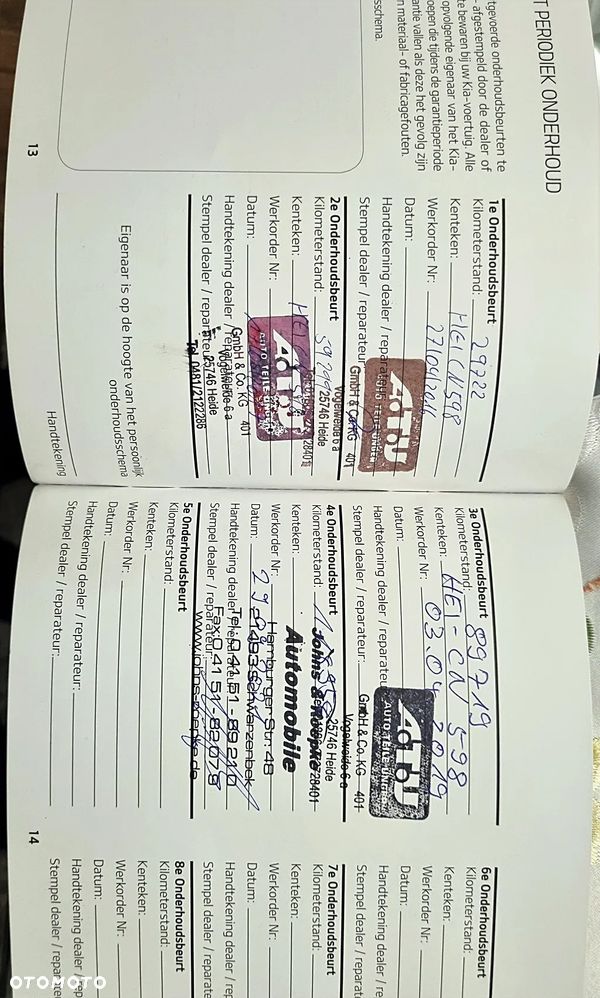 T PERIODIEK ONDERHOUD
tgevoerde onderhoudsbeurten te
- afgestempeld door de dealer of
te bewaren bij uw Kia-voertuig. Alle
opvolgende eigenaar van het Kia-
oepen die tijdens de garantieperiode
antie vallen als deze het gevolg zijn
n materiaal- of fabricagefouten.
sschema.
13
1e Onderhoudsbeurt
Kilometerstand: 29722
Kenteken: HEI CN 598
Werkorder Nr:
Datum:
Handtekening dealer / reparateur
Stempel dealer / reparateur:
AdBU
AUTO TEILE UNGER
GmbH & Co. KG 401
Vogelweide 6 a
25746 Heide
28401
2e Onderhoudsbeurt
Kilometerstand:
Kenteken:
Werkorder Nr:
Datum:
Handtekening dealer / reparateur
Stempel dealer / reparateur:
GmbH & Co. KG 401
Vogelweide 6 a
25746 Heide
Tel. 0481/2122286
Eigenaar is op de hoogte van het persoonlijk
onderhoudsschema
Handtekening
3e Onderhoudsbeurt
Kilometerstand: 89719
Kenteken: HEI-CN 598
Werkorder Nr: 03.04.2019
Datum:
Handtekening dealer / reparateur
Stempel dealer / reparateur:
GmbH & Co. KG 401
Vogelweide 6 a
25746 Heide
28401
4e Onderhoudsbeurt
Kilometerstand:
Kenteken:
Werkorder Nr:
Datum:
Handtekening dealer / reparateur
Stempel dealer / reparateur:
Automobile
Hamburger Str. 48
21493 Schwarzenbek
Tel. 0 41 51 - 89 21 0
Fax: 0 41 51 - 82 07 8
5e Onderhoudsbeurt
Kilometerstand:
Kenteken:
Werkorder Nr:
Datum:
Handtekening dealer / reparateur:
Stempel dealer / reparateur:
14
6e Onderhoudsbeurt
Kilometerstand:
Kenteken:
Werkorder Nr:
Datum:
Handtekening dealer / r
Stempel dealer / repara
7e Onderhoudsbeurt
Kilometerstand:
Kenteken:
Werkorder Nr:
Datum:
Handtekening dealer / r
Stempel dealer / repara
8e Onderhoudsbeurt
Kilometerstand:
Kenteken:
Werkorder Nr:
Datum:
Handtekening dealer /
Stempel dealer / repara
OTOMOTO